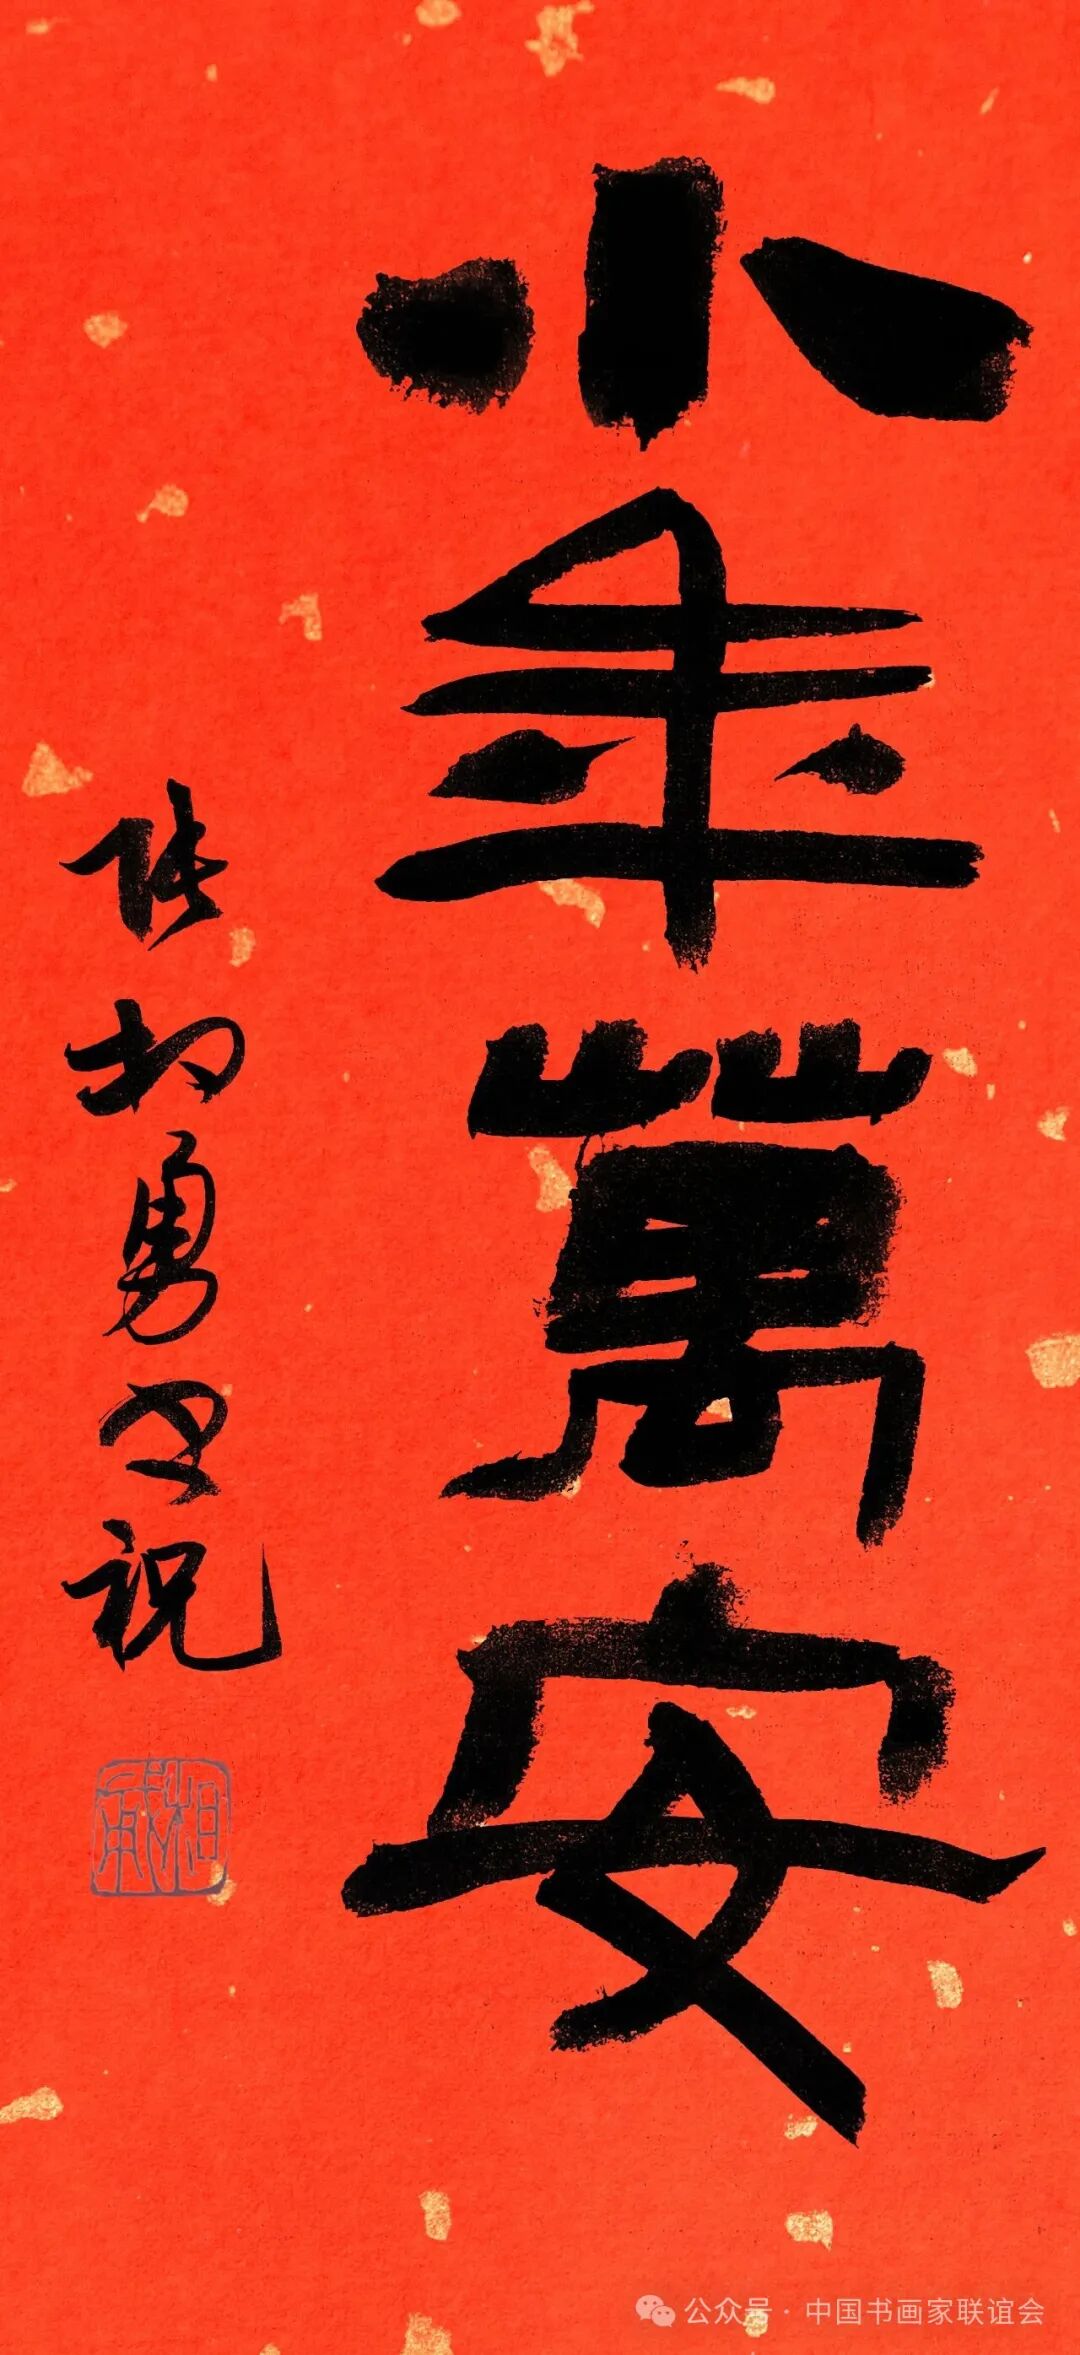 小年萬安
张相勇 祝
公众号 · 中国书画家联谊会